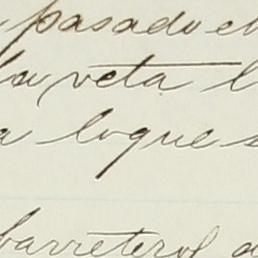 pasado e
la veta l
a loque s
barreteros d